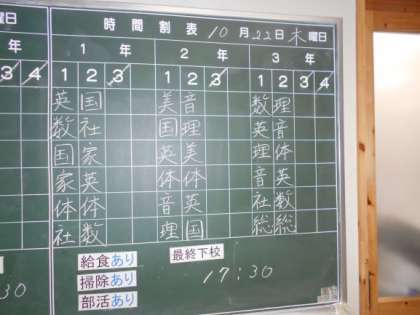 曜日
時間割表 10月22日木曜日
年 1年 2年 3年
3 4 1 2 3 1 2 3 1 2 3 4
英 国 美 音 数 理
数 社 国 理 英 音
国 家 英 美 理 体
家 英 体 体 音 英
体 体 音 英 社 数
社 数 理 国 総 総
給食あり 最終下校
掃除あり 17:30
部活あり
30